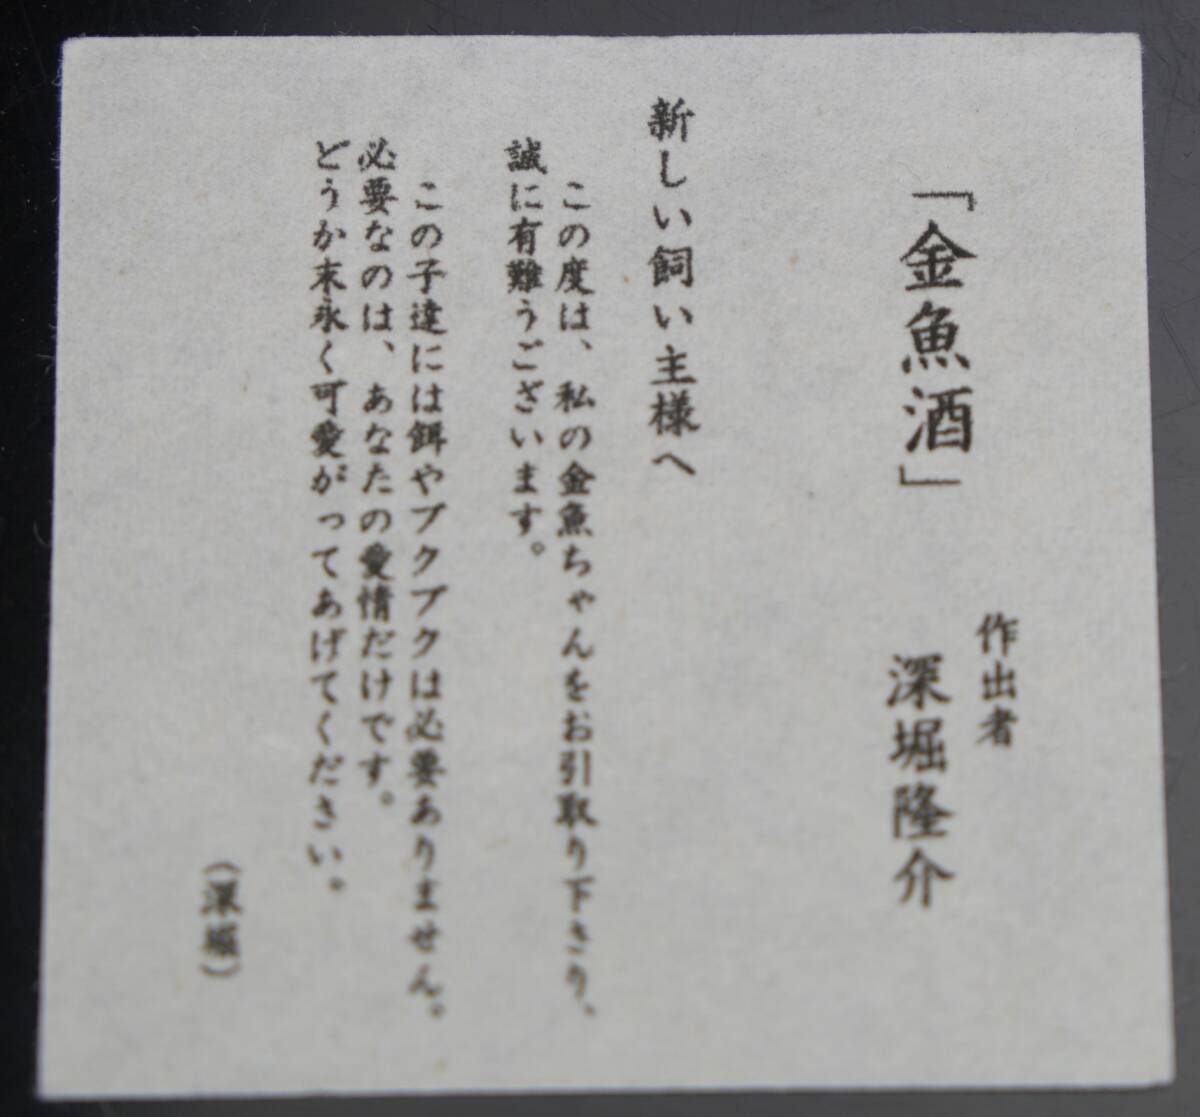 「金魚酒」
作出者
深堀隆介
新しい飼い主様へ
この度は、私の金魚ちゃんをお引取り下さり、
誠に有難うございます。
この子達には餌やブクブクは必要ありません。
必要なのは、あなたの愛情だけです。
どうか末永く可愛がってあげてください。
（深堀）